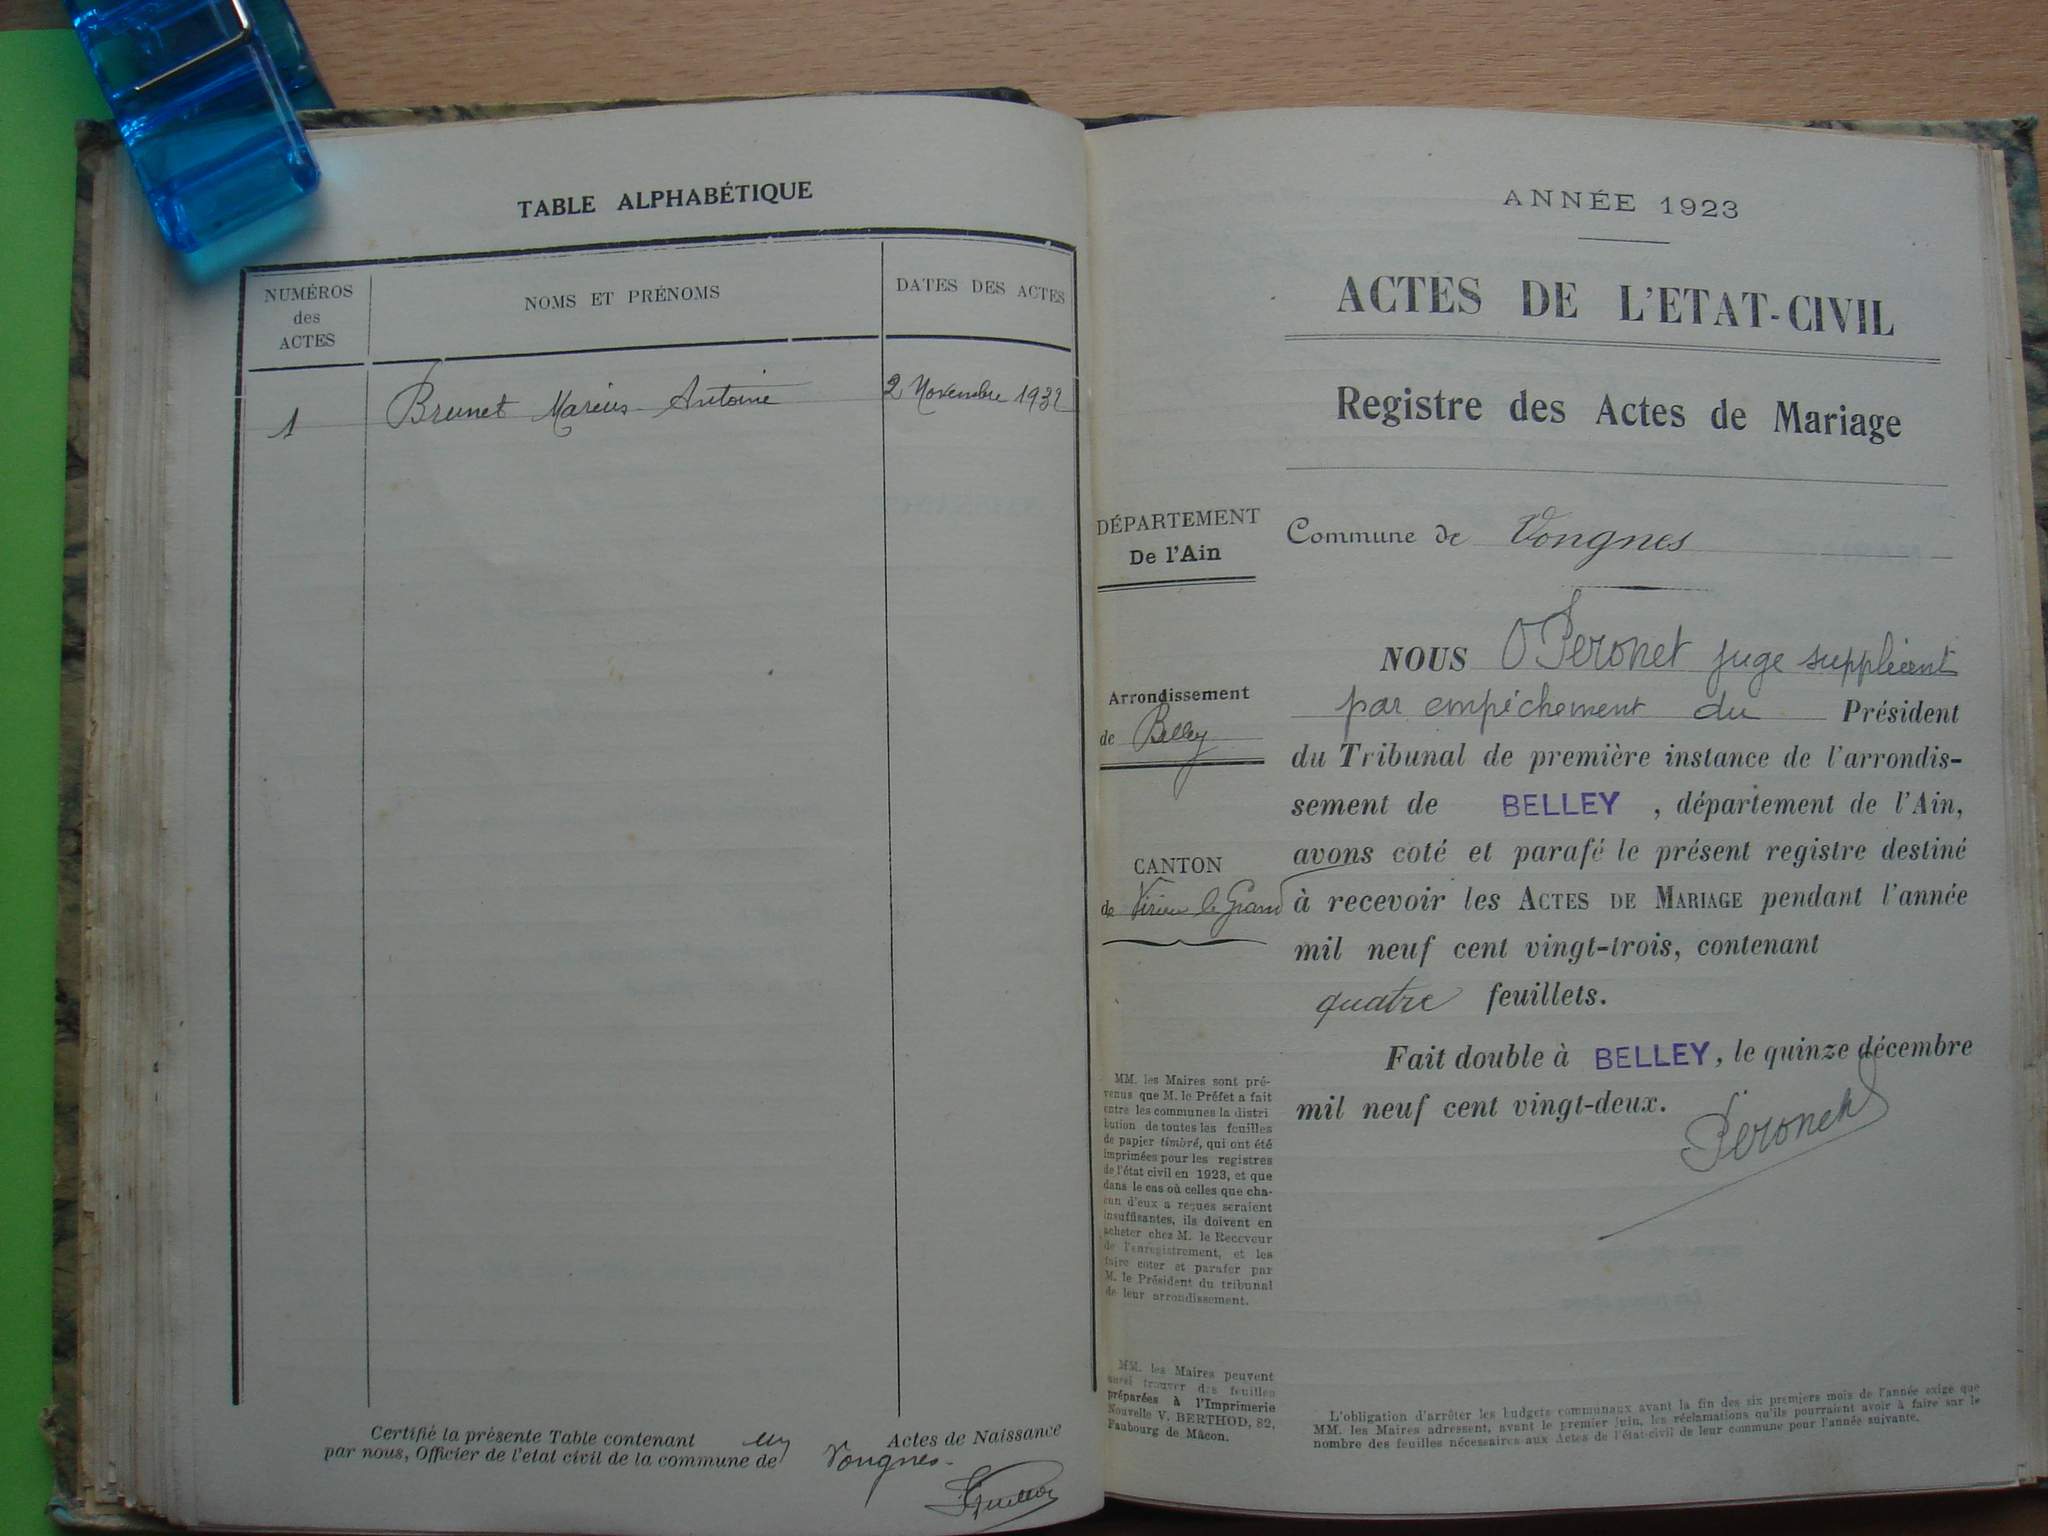 TABLE ALPHABÉTIQUE
NUMÉROS
des
ACTES
NOMS ET PRÉNOMS
DATES DES ACTES
1
Brunet Marius Antoine
2 Novembre 1932
Certifié la présente Table contenant un Actes de Naissance
par nous, Officier de l'etat civil de la commune de Vongnes.
ANNÉE 1923
ACTES DE L'ETAT-CIVIL
Registre des Actes de Mariage
DÉPARTEMENT
De l'Ain
Commune de Vongnes
Arrondissement
de Belley
CANTON
de Virieu le Grand
NOUS Peronet juge suppléant
par empêchement du Président
du Tribunal de première instance de l'arrondis-
sement de BELLEY, département de l'Ain,
avons coté et parafé le présent registre destiné
à recevoir les ACTES DE MARIAGE pendant l'année
mil neuf cent vingt-trois, contenant
quatre feuillets.
Fait double à BELLEY, le quinze décembre
mil neuf cent vingt-deux.
Peronet
MM. les Maires sont pré-
venus que M. le Préfet a fait
entre les communes la distri
bution de toutes les feuilles
de papier timbré, qui ont été
imprimées pour les registres
de l'état civil en 1923, et que
dans le cas où celles que cha-
cun d'eux a reçues seraient
insuffisantes, ils doivent en
acheter chez M. le Receveur
de l'enregistrement, et les
faire coter et parafer par
M. le Président du tribunal
de leur arrondissement.
MM. les Maires peuvent
aussi trouver des feuilles
préparées à l'Imprimerie
Nouvelle V. BERTHOD, 82,
Faubourg de Mâcon.
L'obligation d'arrêter les budgets communaux avant la fin des six premiers mois de l'année exige que
MM. les Maires adressent, avant le premier juin, les réclamations qu'ils pourraient avoir à faire sur le
nombre des feuilles nécessaires aux Actes de l'état-civil de leur commune pour l'année suivante.